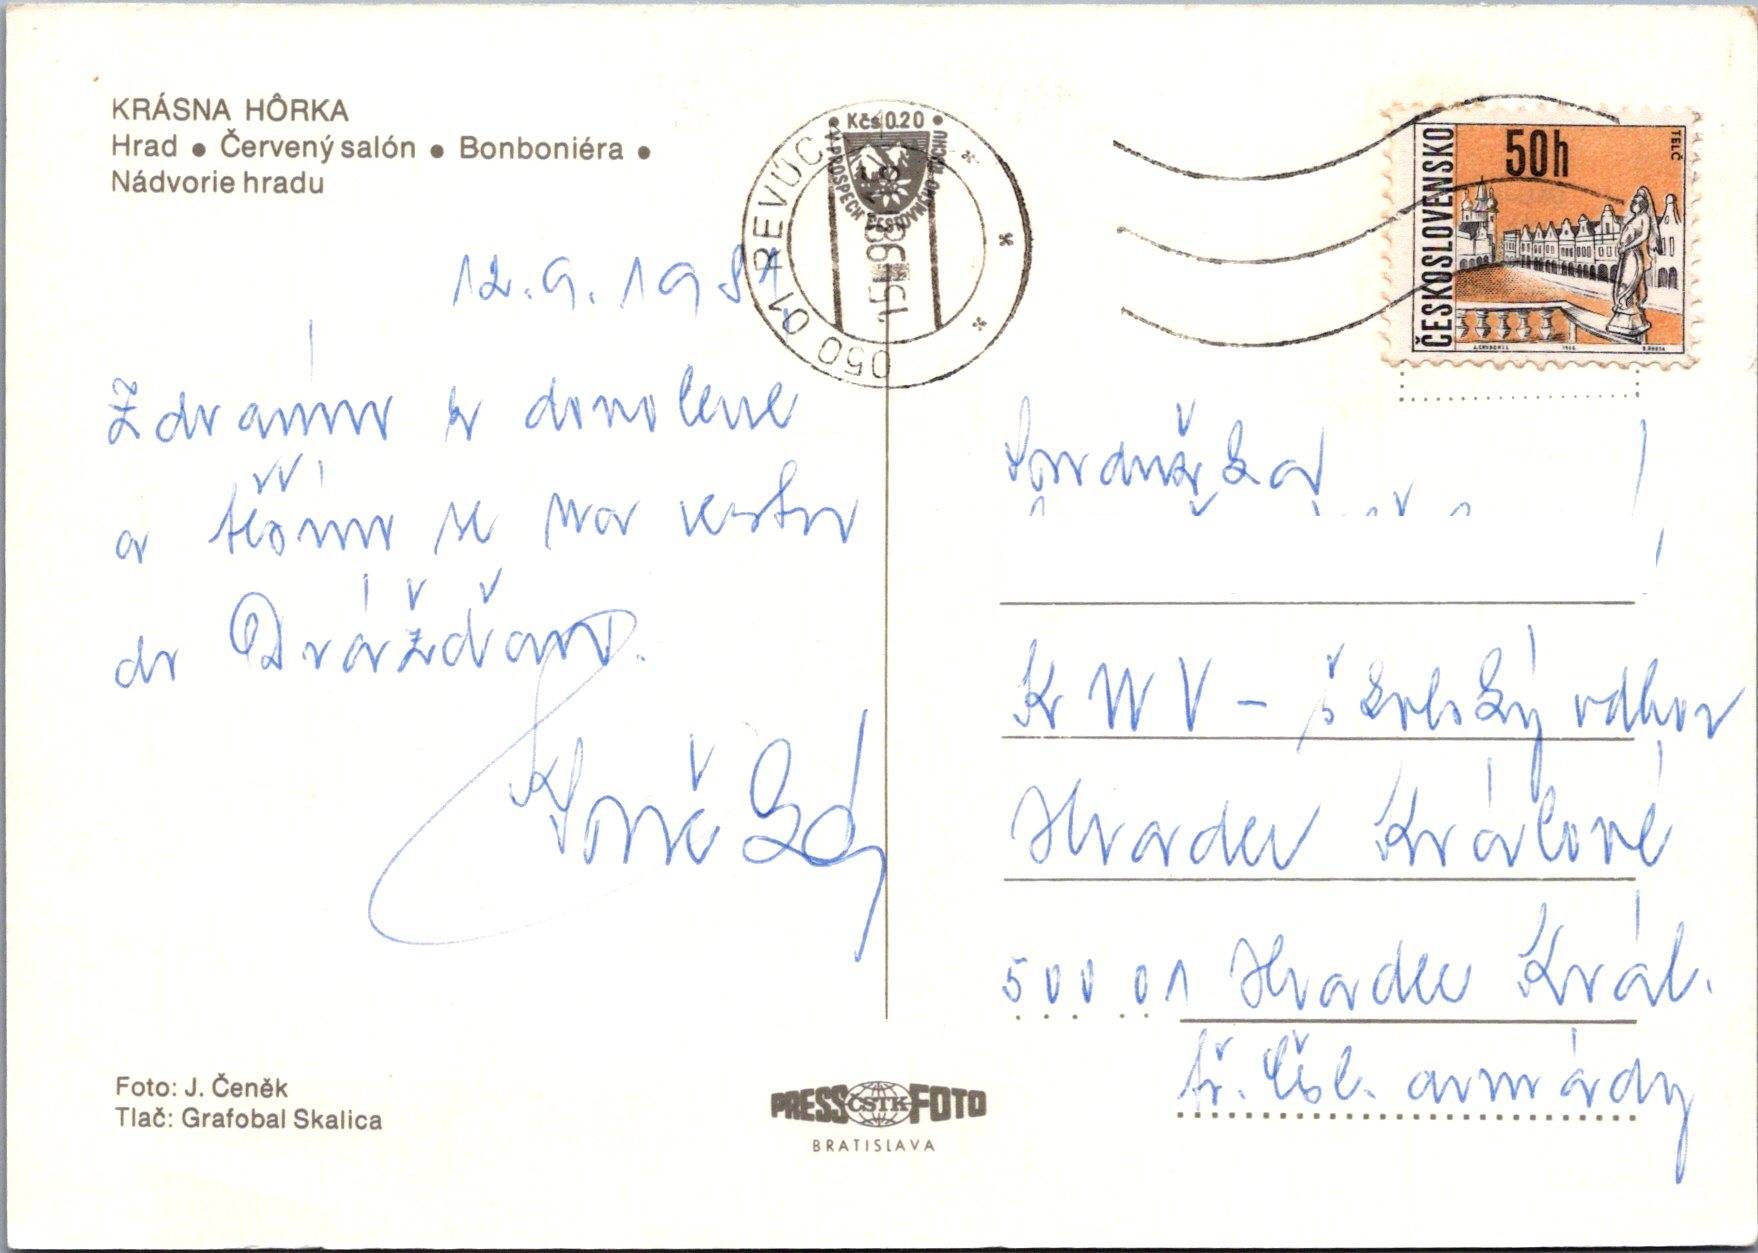 KRÁSNA HÔRKA
Hrad • Červený salón • Bonboniéra •
Nádvorie hradu
12.9.198
Zdravím z dovolené
a těším se na cestu
do Drážďan.
Soudružka
KNV - školský odbor
Hradec Králové
500 01 Hradec Král.
tř. čsl. armády
Kčs 0.20
V PROSPECH CESTOVNÉHO RUCHU
050 01 REVÚC
15
98
ČESKOSLOVENSKO
50h
TELČ
Foto: J. Čeněk
Tlač: Grafobal Skalica
PRESS ČSTK FOTO
BRATISLAVA